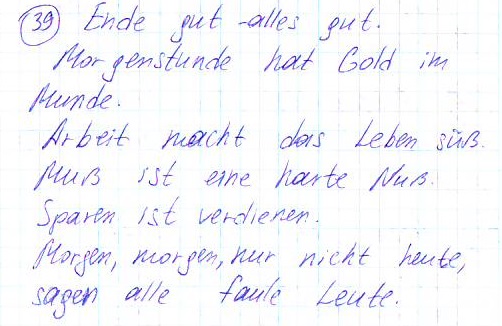 39 Ende gut - alles gut.
Morgenstunde hat Gold im
Munde.
Arbeit macht das Leben süß.
Muß ist eine harte Nuß.
Sparen ist verdienen.
Morgen, morgen, nur nicht heute,
sagen alle faule Leute.